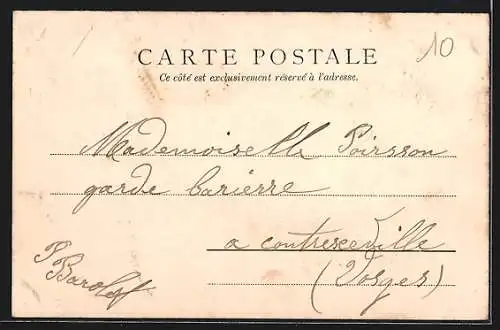 10
CARTE POSTALE
Ce côté est exclusivement réservé à l'adresse.
Mademoiselle Poirsson
garde barierre
a contrexeville
(Vosges)
P